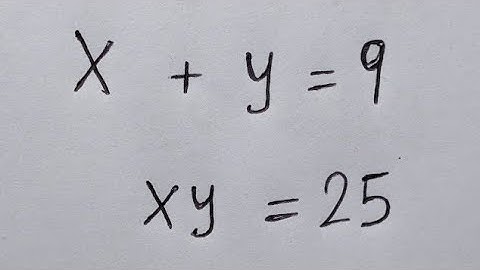 x + y = 9
xy = 25